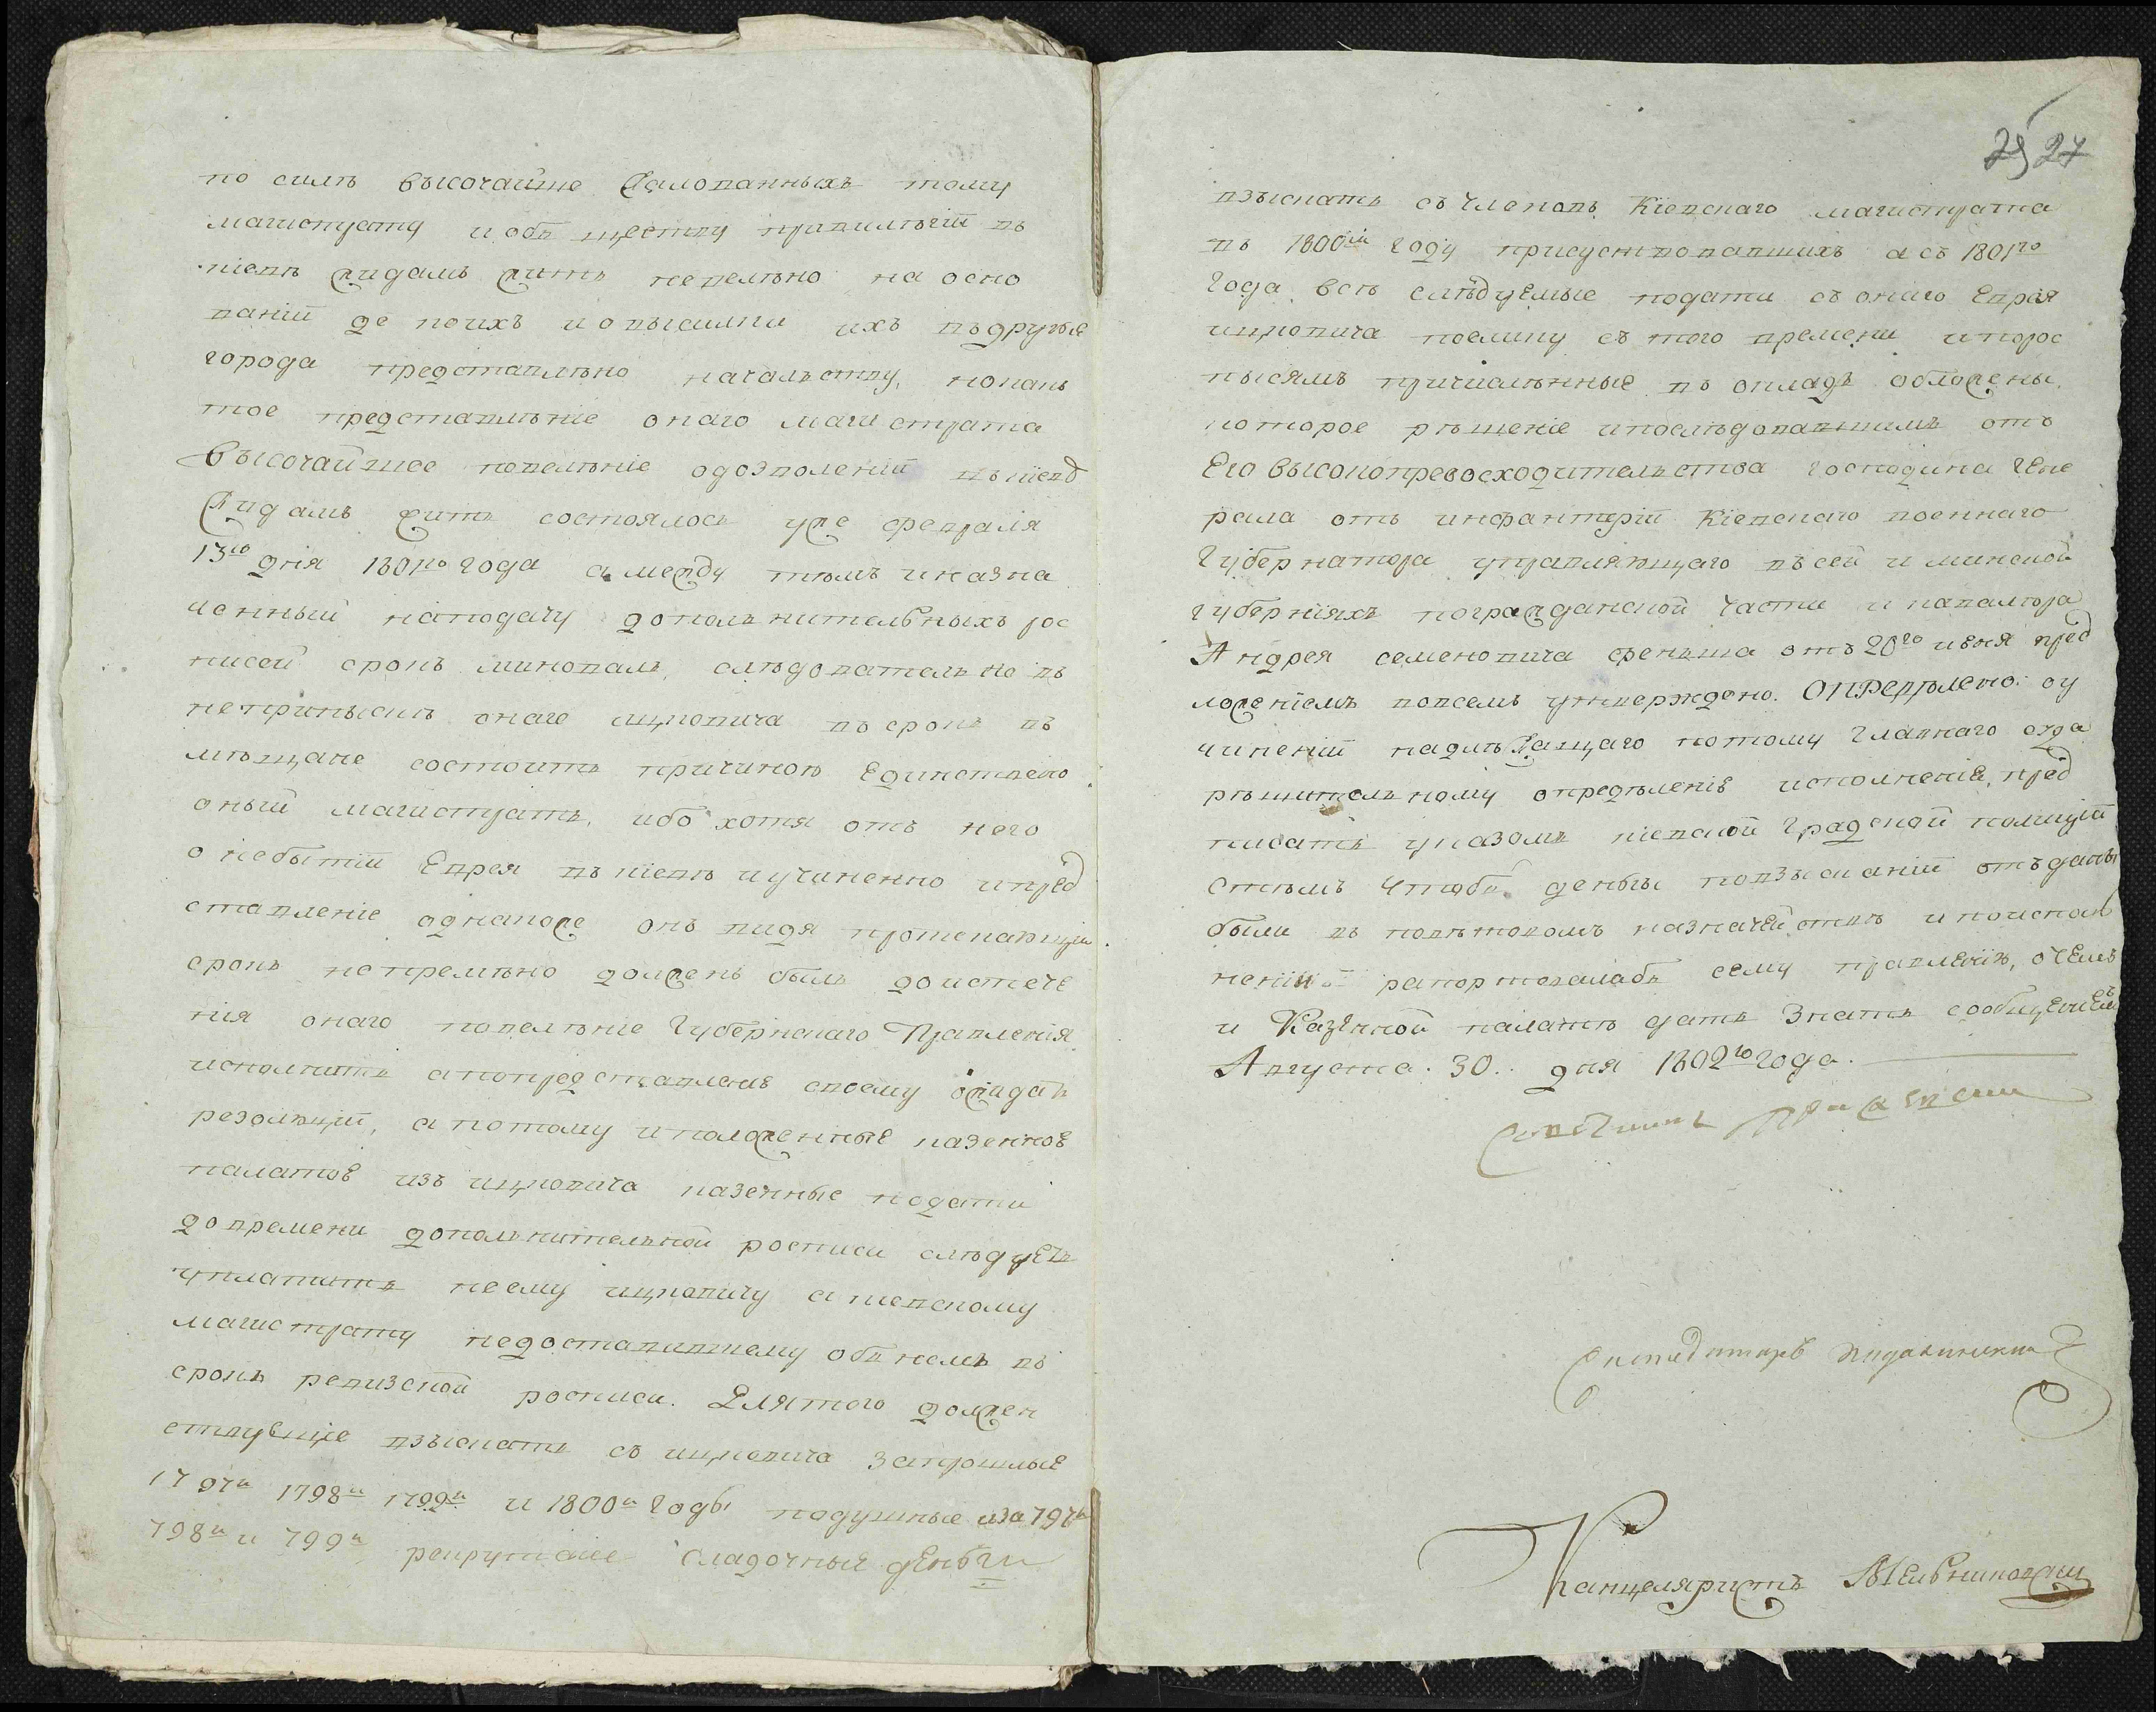 по силѣ высочайше жалованныхъ тому
магистрату и обществу привилегій въ
кіевѣ жидамъ жить невелѣно на осно
ваніи де коихъ и овысилки ихъ вдругые
города представлѣно началъству, нонанъ
тое представлѣніе онаго магистрата
высочайшее повелѣніе одозволеніи въ кіевѣ
жидамъ жить состоялось уже февраля
13го дня 1801го года а между тѣмъ и назна
ченный наподачу дополънительныхъ рос
писей срокъ миновалъ, слѣдователъно въ
неприпискѣ онаго ицковича въ срокъ въ
мѣщане состоитъ причиною единствено
оный магистратъ, ибо хотя отъ него
о небытіи Еврея въ кіевѣ и учиненно и пред
ставленіе однакоже онъ видя протекающій
срокъ непремѣно долженъ былъ доистече
нія онаго повелѣніе Губернскаго Правленія
исполнить а попредставленію своему ожидать
резолюціи, а потому и положенные казенною
палатою изъ ицковича казенные подати
довремени дополънителъной росписи слѣдуетъ
уплатить не ему ицковичу а кіевскому
магистрату недоставившему объ немъ въ
срокъ ревизской росписи. Для того должен
ствующіе взыскать съ ицковича запрошлые
1797й 1798й 1799й и 1800й годы подушные иза 797й
798й и 799й рекрутскіе складочные деньги
29 27
взыскать съ членовъ Кіевскаго магистрата
въ 1800мъ году присутствовавшихъ а съ 1801го
года всѣ слѣдуемые подати съ онаго Еврея
ицковича поелику съ того времени и порос
писямъ причисленные въ окладъ обложены,
которое рѣшеніе ипослѣдовавшимъ отъ
Его высокопревосходительства господина Гене
рала отъ инфантеріи Кіевскаго военнаго
Губернатора управляющаго въ сей и минской
губерніяхъ погражданской части и кавалера
Андрея семеновича феньша отъ 20го июня пред
ложеніемъ вовсемъ утверждено. Опредѣлено: оу
чиненіи надлѣжащаго потому главнаго суда
рѣшителъному опредѣленію исполненіе, пред
писать указомъ кіевской градской полиціи
стѣмъ чтобы деньги повзысканіи отъданы
были въ повѣтовомъ казначействѣ и поиспол
неніи рапортовалабъ сему правленію, очемъ
и Казенной палатѣ дать знать сообщениемъ
Августа. 30.. дня 1802го года.
Совѣтникъ
Канцеляристъ